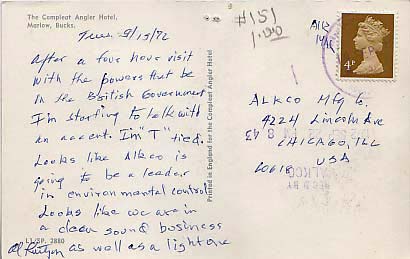 The Compleat Angler Hotel,
Marlow, Bucks.
Tues. 9/13/72
After a four hour visit
with the powers that be
in the British Government
I'm starting to talk with
an accent. Im "T" tied.
Looks like Alkco is
going to be a leader
in environmental control
Looks like we are in
a clean sound business
as well as a light one
L1/SP. 2880
Printed in England for the Compleat Angler Hotel
#151
1.00
AIR
4P
ALKCO Mfg Co.
4224 Lincoln Ave
CHICAGO, ILL
60618
USA
ALKCO
REC'D BY